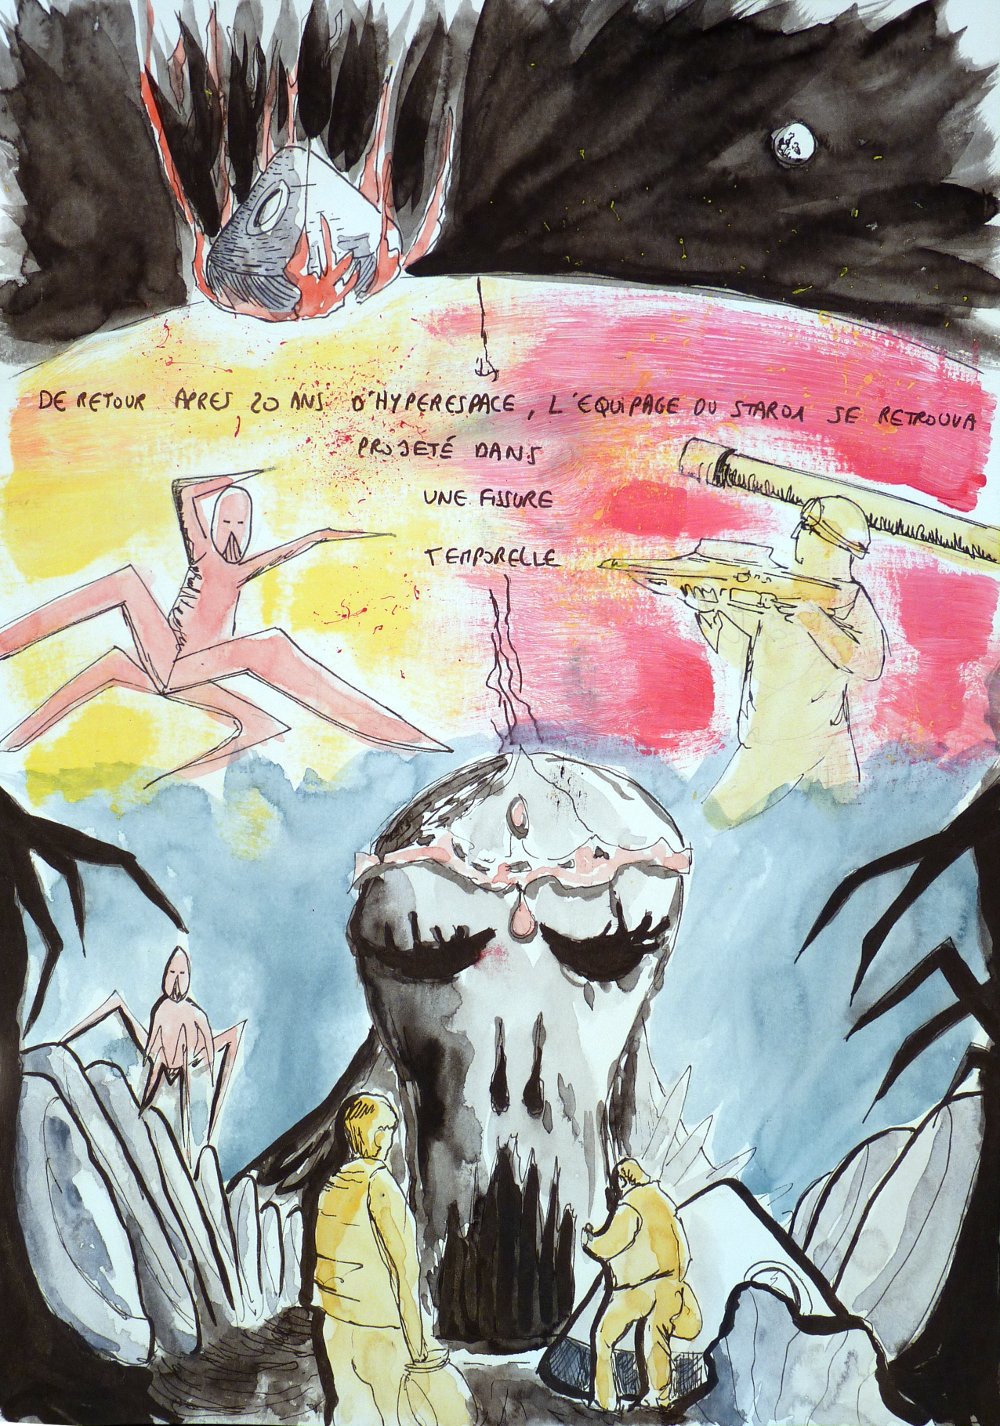 DE RETOUR APRES 20 ANS D'HYPERESPACE, L'EQUIPAGE DU STAR01 SE RETROUVA
PROJETÉ DANS
UNE FISSURE
TEMPORELLE